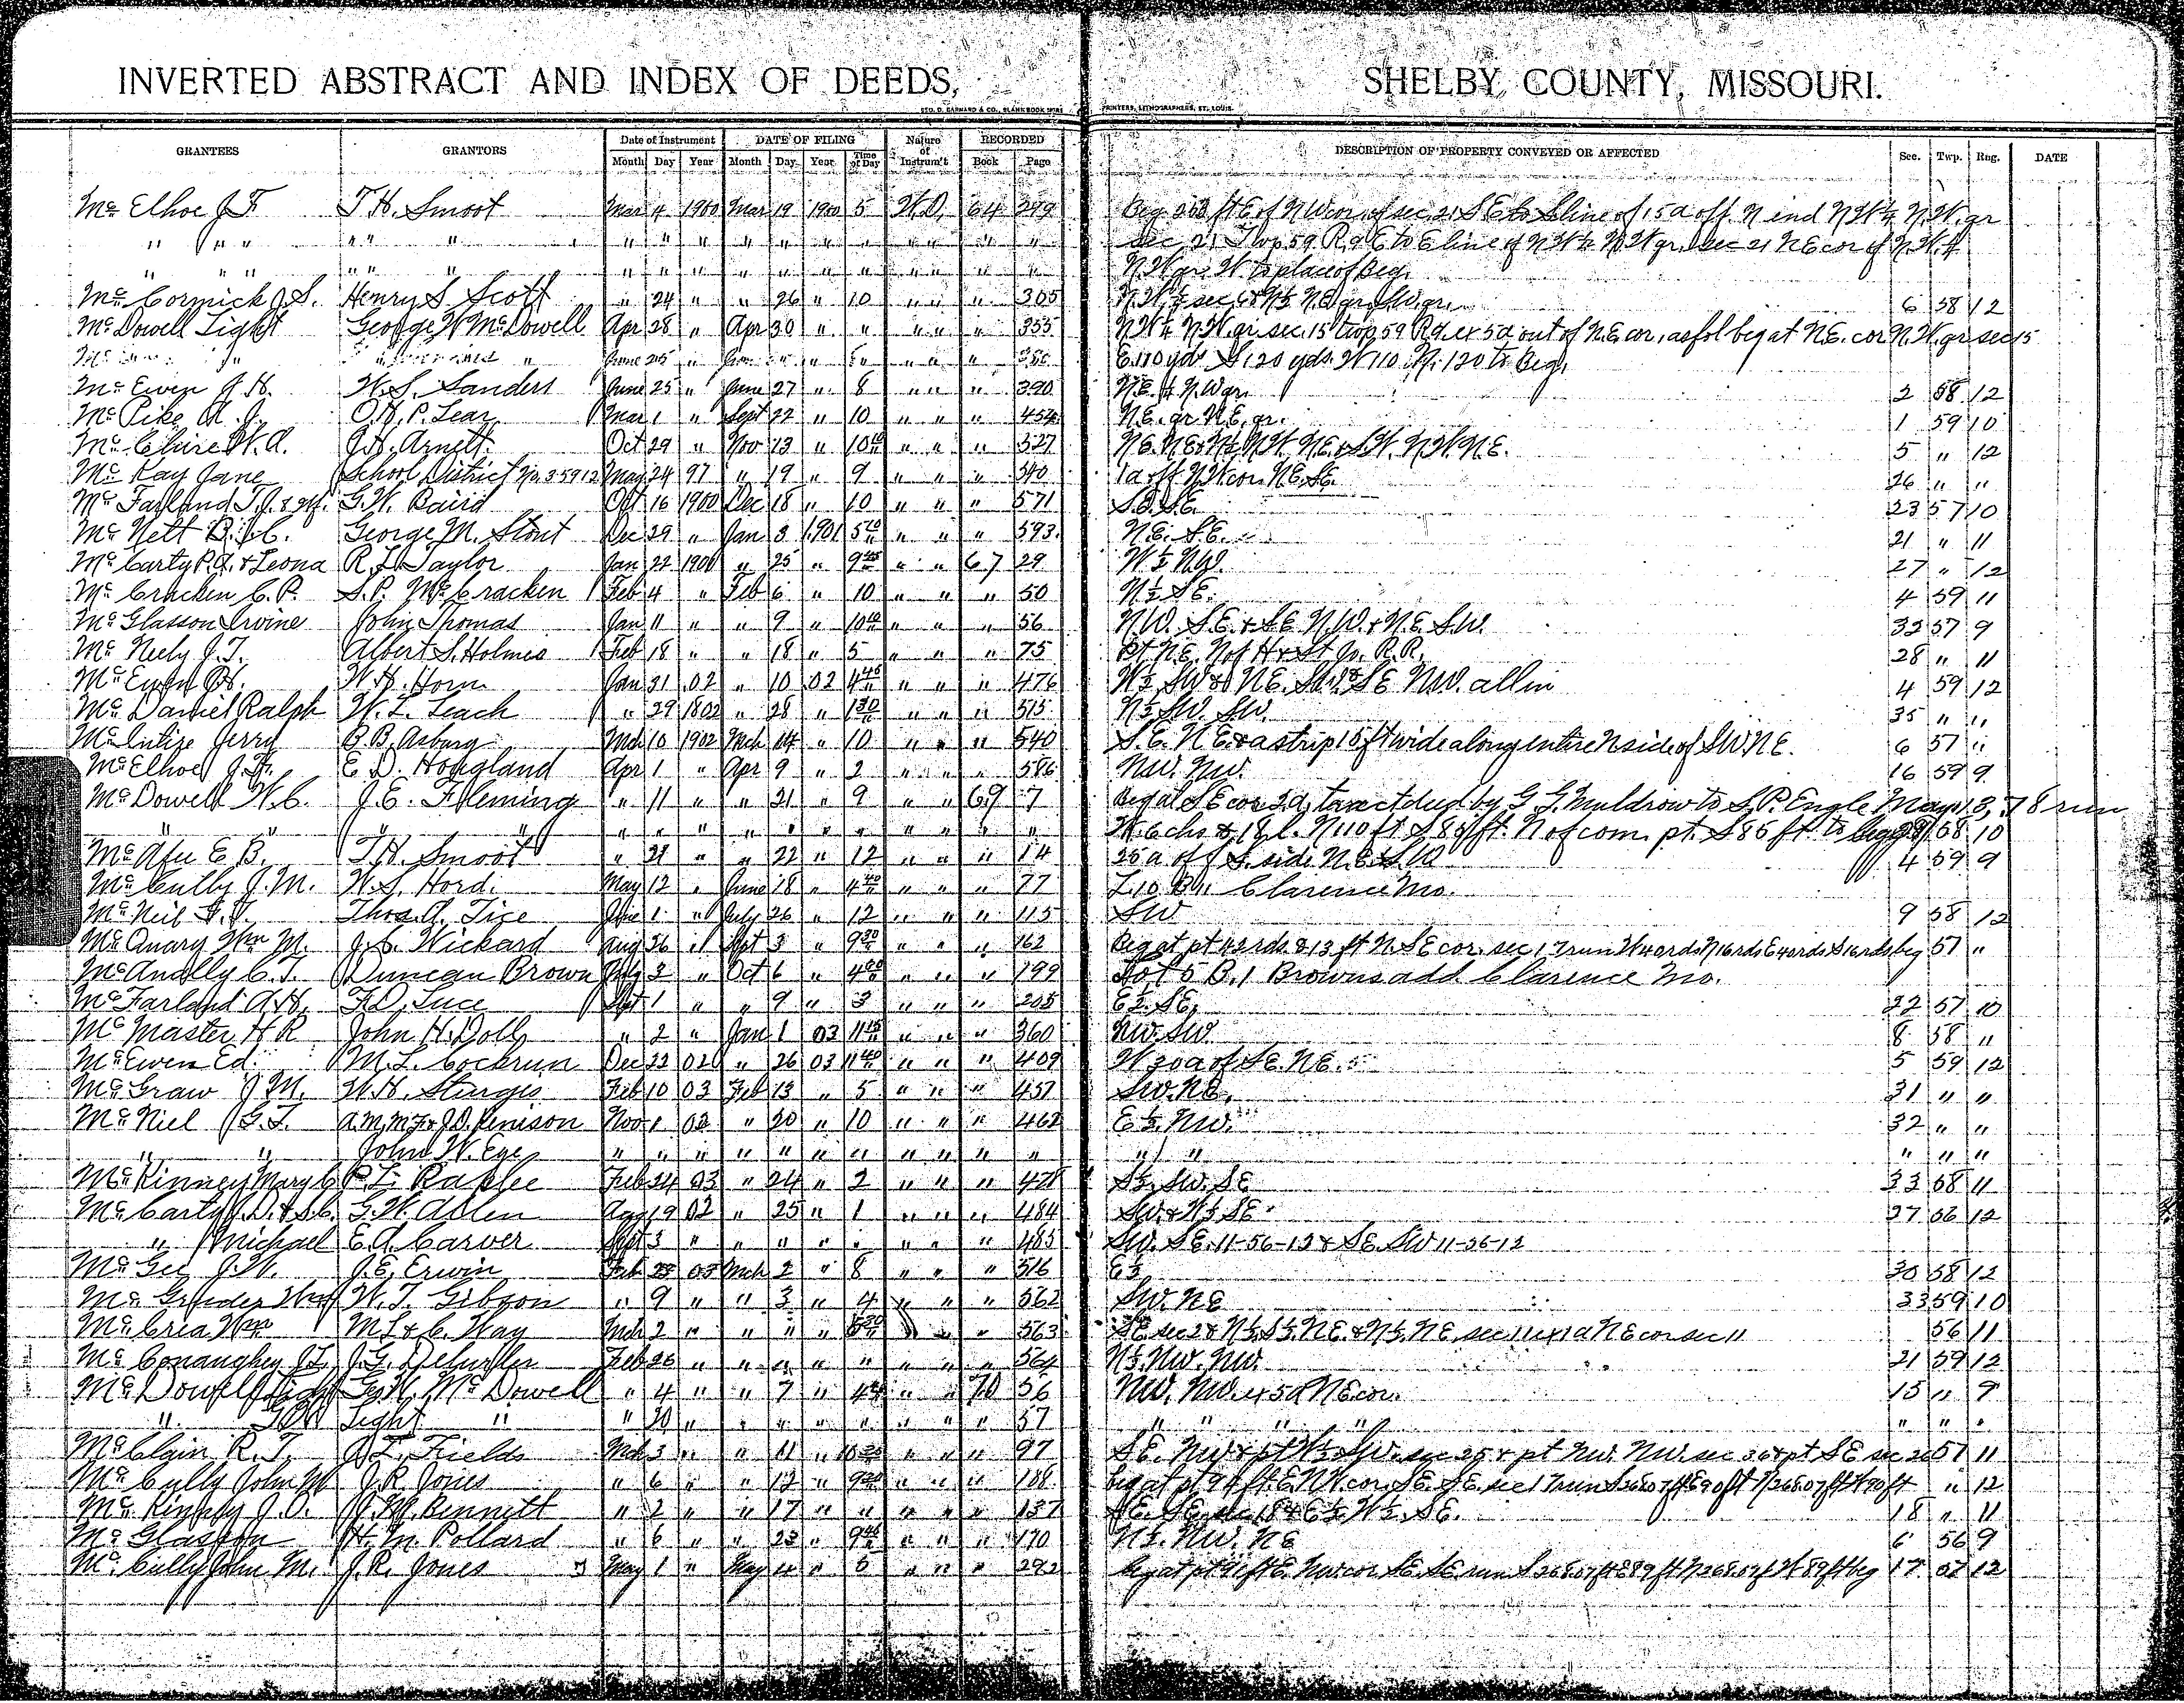 INVERTED ABSTRACT AND INDEX OF DEEDS, SHELBY COUNTY, MISSOURI.
GEO. D. BARNARD & CO., BLANK BOOK PRINTERS, LITHOGRAPHERS, ST. LOUIS.
GRANTEES GRANTORS Date of Instrument DATE OF FILING Nature of Instrum't RECORDED DESCRIPTION OF PROPERTY CONVEYED OR AFFECTED Sec. Twp. Rng. DATE
Month Day Year Month Day Year Time of Day Book Page
Mc Elhoe J F T. H. Smoot Mar 4 1900 Mar 19 1900 5 W.D. 64 249 Beg ft E of NW cor. of sec 21 S E to S line of 15 a off N end N W 1/4 N.W. qr
" " " " " " " " " " " " " " " sec 21 Twp 59 R 9 E to E line of N W 1/4 N W qr. sec 21 N E cor of N.W. 4
" " " " " " " " " " " " " " N W qr. W to place of Beg.
Mc Cormick J. S. Henry S Scott " 24 " " 26 " 10 " " " 305 6 58 12
Mc Dowell Light George W McDowell Apr 28 " Apr 30 " " " " " 355 N W 1/4 N.W. qr sec. 15 twp 59 R 9 ex 5 a out of N.E. cor, as fol beg at N.E. cor N.W. qr sec 15
E. 110 yds S. 120 yds. W 110 N. 120 to Beg.
Mc Ewen J. H. W. S. Sanders June 25 " June 27 " 8 " " " 390 N.E. 4 N.W qr. 2 58 12
Mc Pike O. H. P. Lear Mar 1 " Sept 22 " 10 " " " 454 N.E. qr N.E. qr. 1 59 10
Mc Clure W. A. J. H. Arnett Oct 29 " Nov 13 " 10 " " " 527 5 " 12
Mc Kay Jane School District No. 3 59 12 May 24 97 " 19 " 9 " " " 540 1 a off N W cor. N.E. S.E. 26 " "
Mc Farland T. J. & G. W. Baird Oct 16 1900 Dec 18 " 10 " " " 571 S.E. S.E. 23 57 10
Mc Nett B. C. George M. Stout Dec 29 " Jan 3 1901 5 " " " 593 N.E. S.E. 21 " 11
Mc Carty P. A. & Leona R. L. Taylor Jan 22 1901 " 25 " 9 45 " " 67 29 W 1/2 N.W. 27 " 12
Mc Cracken C. P. S. P. McCracken Feb 4 " Feb 6 " 10 " " " 50 N 1/2 S E. 4 59 11
Mc Glasson Irvine John Thomas Jan 11 " " 9 " 10 " " " 56 N.W. S.E. & S.E. N.W. & N.E. S.W. 32 57 9
Mc Neely J. T. Albert S. Holmes Feb 18 " " 18 " 5 " " " 75 Pt N.E. N of H & St Jo. R.R. 28 " 11
Mc Ewen J. H. W. H. Horn Jan 31 02 " 10 02 4 45 " " " 476 W 1/2 SW & N.E. S.W. & S E N.W. all in 4 59 12
Mc Daniel Ralph W. L. Leach " 29 1802 " 28 " 1 30 " " " 515 N 1/2 S.W. S.W. 35 " "
Mc Intire Jerry B. B. Asbury Mch 10 1902 Mch 14 " 10 " " " 540 S.E. N E. & a strip 15 ft wide along entire N side of S.W. N E. 6 57 "
Mc Elhoe J. F. E. D. Hoagland Apr 1 " Apr 9 " 2 " " " 586 NW. NW. 16 59 9
Mc Dowell W. C. J. E. Fleming " 11 " " 21 " 9 " " 69 7 Beg at S E cor 2 a tract deed by G. G. Muldrow to S. P. Engle May 13, 78 run
" " " " " " " " " " " " " " W 6 chs & 18 l. N 110 ft S 85 ft. N of com. pt. S 85 ft. to beg 58 10
Mc Afee E B. T. H. Smoot " 21 " " 22 " 12 " " " 14 25 a off S. side N.E. S.W 4 59 9
Mc Cully J. M. W. S. Hord. May 12 " June 18 " 4 40 " " " 77 L 10 B 11 Clarence Mo.
Mc Neil G. T. Thos. A. Tice June 1 " July 26 " 12 " " " 115 SW 9 58 12
Mc Quary Wm M. J. C. Wickard Aug 26 " Sept 3 " 9 30 " " " 162 Beg at pt 42 rds & 13 ft N. S E cor. sec 1, 7 run W 40 rds N 16 rds E 40 rds S 16 rds beg 57 "
Mc Anally C. T. Duncan Brown July 3 " Oct 6 " 4 " " " 199 Lot 5 B. 1 Browns add Clarence Mo.
Mc Farland A. H. F. D. Luce Sept 1 " " 9 " 3 " " " 205 E 1/2 S E. 22 57 10
Mc Master H R John H. Doll " 2 " Jan 1 03 11 15 " " " 360 NW. SW 8 58 "
Mc Ewen Ed. M. L. Cockrum Dec 22 02 " 26 03 11 40 " " " 409 W 30 a of S.E. N E. 5 59 12
Mc Graw J M. W. H. Sturges Feb 10 03 Feb 13 " 5 " " " 457 SW. NE. 31 " "
Mc Niel G. T. A. M, M. F. & J. D. Denison Nov 1 02 " 20 " 10 " " " 462 E 1/2 NW. 32 " "
" " John W. Ege " " " " " " " " " " " " " " " "
Mc Kinney Mary C. R. L. Feb 24 03 " 24 " 2 " " " 478 S 1/2. SW. SE 33 58 11
Mc Carty J. D. & S. C. G. W. Allen Aug 19 02 " 25 " 1 " " " 484 SW. & W 1/2 S E 27 56 12
" Michael E. A. Carver Sept 3 " " " " " " " " 485 SW. S E. 11-56-12 & S E. SW 11-56-12
Mc Gee J. W. J. E. Erwin Feb 25 03 Mch 2 " 8 " " " 516 E 1/2 30 58 12
Mc W. T. Gibson " 9 " " 3 " 4 " " " 562 SW. NE 33 59 10
Mc Crea Wm M. L. & C. Way Mch 2 " " " " 5 30 " " 563 S E. sec 2 & N 1/2 S 1/2. N E. & N 1/2. N E. sec 11 ex 1 a N E cor sec 11 56 11
Mc Conaughey J. L. J. G. Feb 26 " " " " " " " " 564 N 1/2. NW. NW. 21 59 12
Mc Dowell Light Geo W. McDowell " 4 " " 7 " 4 " " 70 56 NW. NW. ex 5 a N E cor. 15 " 9
" G W Light " " 20 " " " " " " " " 57 " " " " " " "
Mc Clain R. T. J. L. Fields Mch 3 " " 11 " 10 30 " " " 97 S E. NW & pt W 1/2 S.W. sec 25 & pt NW. NW. sec 36 & pt S E sec 26 57 11
Mc Cully John M J. R. Jones " 6 " " 12 " 9 " " " 108 Beg at pt 94 ft. E. NW cor. S E. S E. sec 17 run S 268.07 ft E 90 ft N 268.07 ft W 90 ft " 12
Mc Kinney J. O. J. M. Bennett " 2 " " 17 " " " " " 137 18 " 11
Mc Glasson H. M. Pollard " 6 " " 23 " 9 45 " " " 170 N 1/2. NW. NE 6 56 9
Mc Cully John M. J. R. Jones May 1 " May 4 " 5 " " " 292 Beg at pt 91 ft E. NW cor S E. S E run S 268.07 ft E 89 ft N 268.07 ft W 89 ft beg 17 57 12